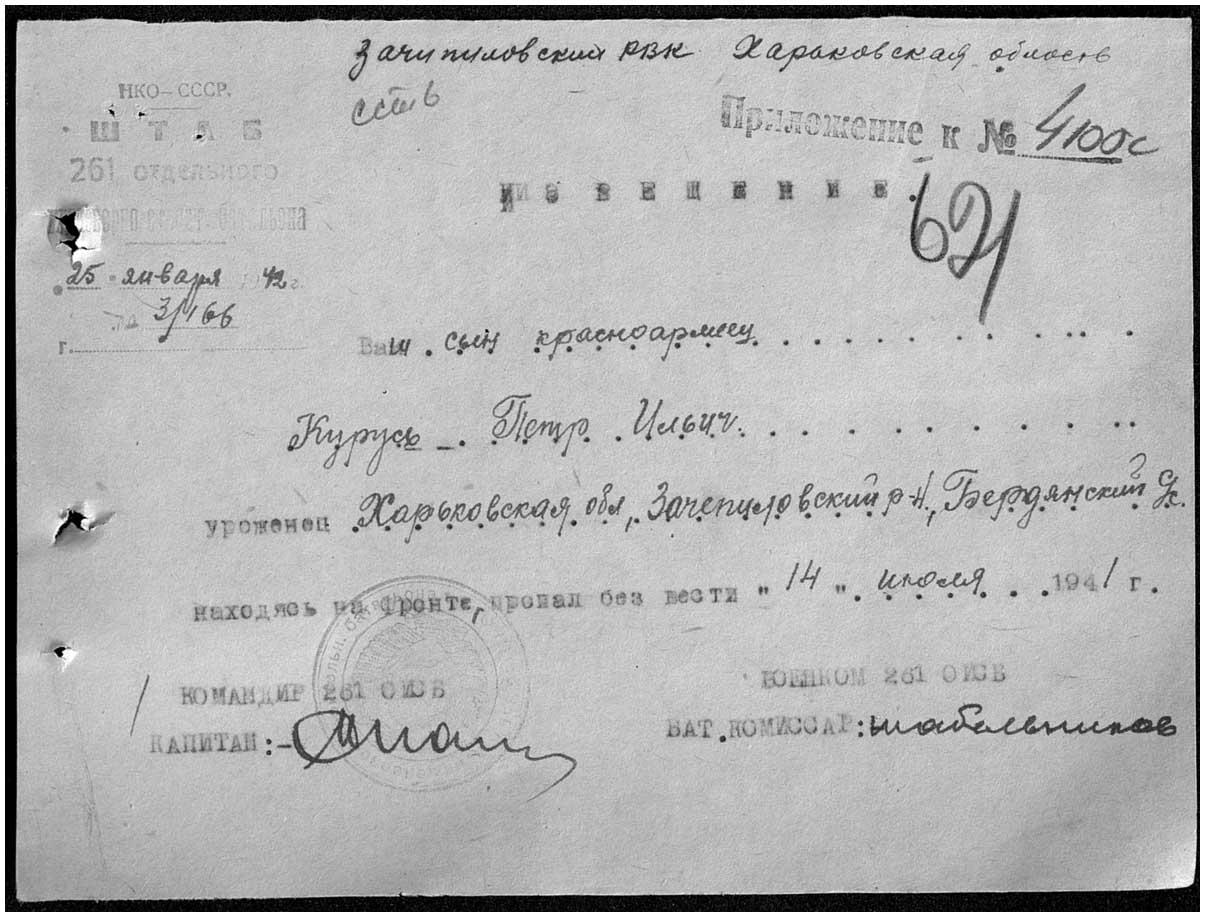 Зачипиловский РВК Харьковская область
НКО-СССР.
ШТАБ
261 отдельного
батальона
25 января 1942 г.
№ 3/166
г.
Приложение к № 4100с
ИЗВЕЩЕНИЕ.
621
Ваш сын красноармеец
Курусь Петр Ильич.
уроженец Харьковская обл, Зачепиловский р-н, Бердянский с/с.
находясь на фронте, пропал без вести "14" июля 1941 г.
КОМАНДИР 261 ОИСБ
КАПИТАН:-
ВОЕНКОМ 261 ОИСБ
БАТ.КОМИССАР: Шабельников